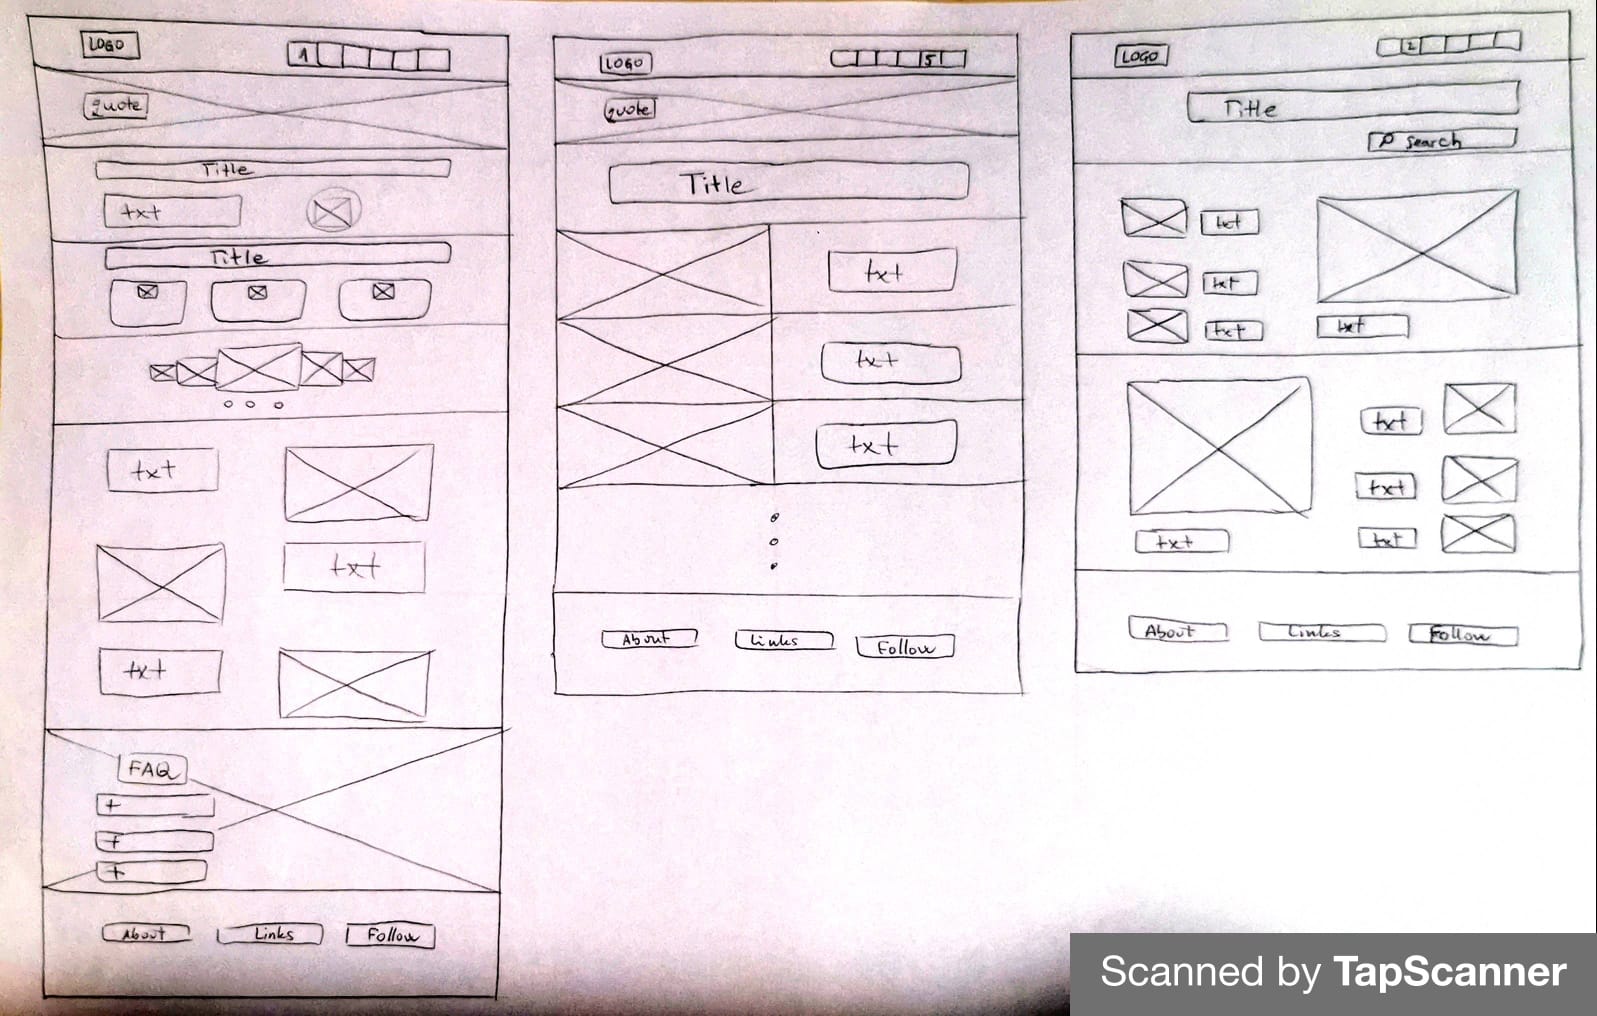 LOGO
1
quote
Title
txt
Title
txt
txt
txt
FAQ
+
+
+
About Links Follow
LOGO
5
quote
Title
txt
txt
txt
About Links Follow
LOGO
2
Title
Search
txt
txt
txt
txt
txt
txt
txt
txt
About Links Follow
Scanned by TapScanner